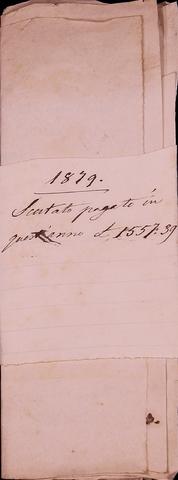 1879.
Scutato pagate in
quest'anno £ 1557:39